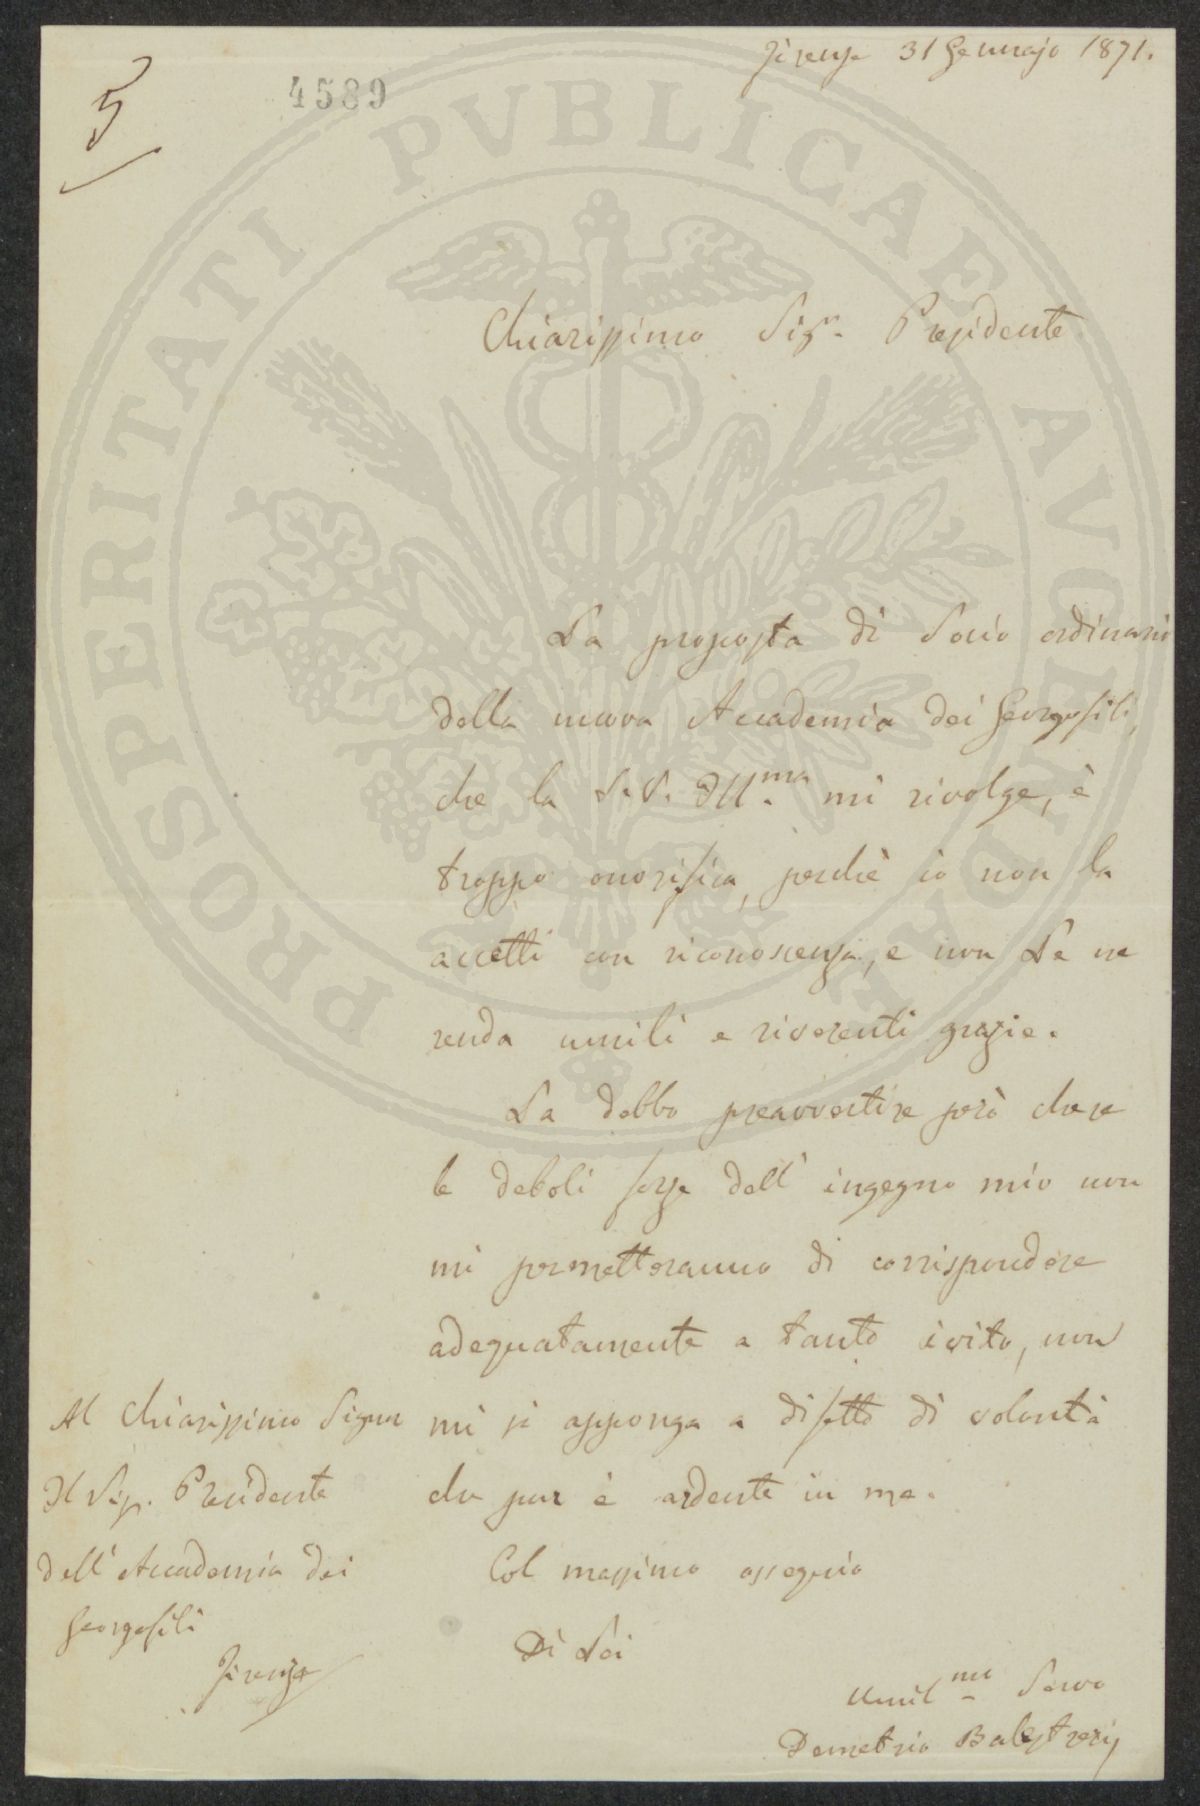 Firenze 31 Gennajo 1871.
5
4589
PROSPERITATI PVBLICAE AVGENDAE
Chiarissimo Sigr. Presidente
La proposta di Socio ordinario
della nuova Accademia dei Georgofili,
che la S.V. Illma. mi rivolge, è
troppo onorifica, perchè io non la
accetti con riconoscenza, e non Le ne
renda umili e riverenti grazie.
La debbo preavvertire però che se
le deboli forze dell' ingegno mio non
mi permetteranno di corrispondere
adeguatamente a tanto ivito, non
mi si apponga a difetto di volontà
che pur è ardente in me.
Col massimo ossequio
Di Lei
Umilmo Servo
Demetrio Balestrerij
Al Chiarissimo Signor
Il Sig. Presidente
dell' Accademia dei
Georgofili
Firenze